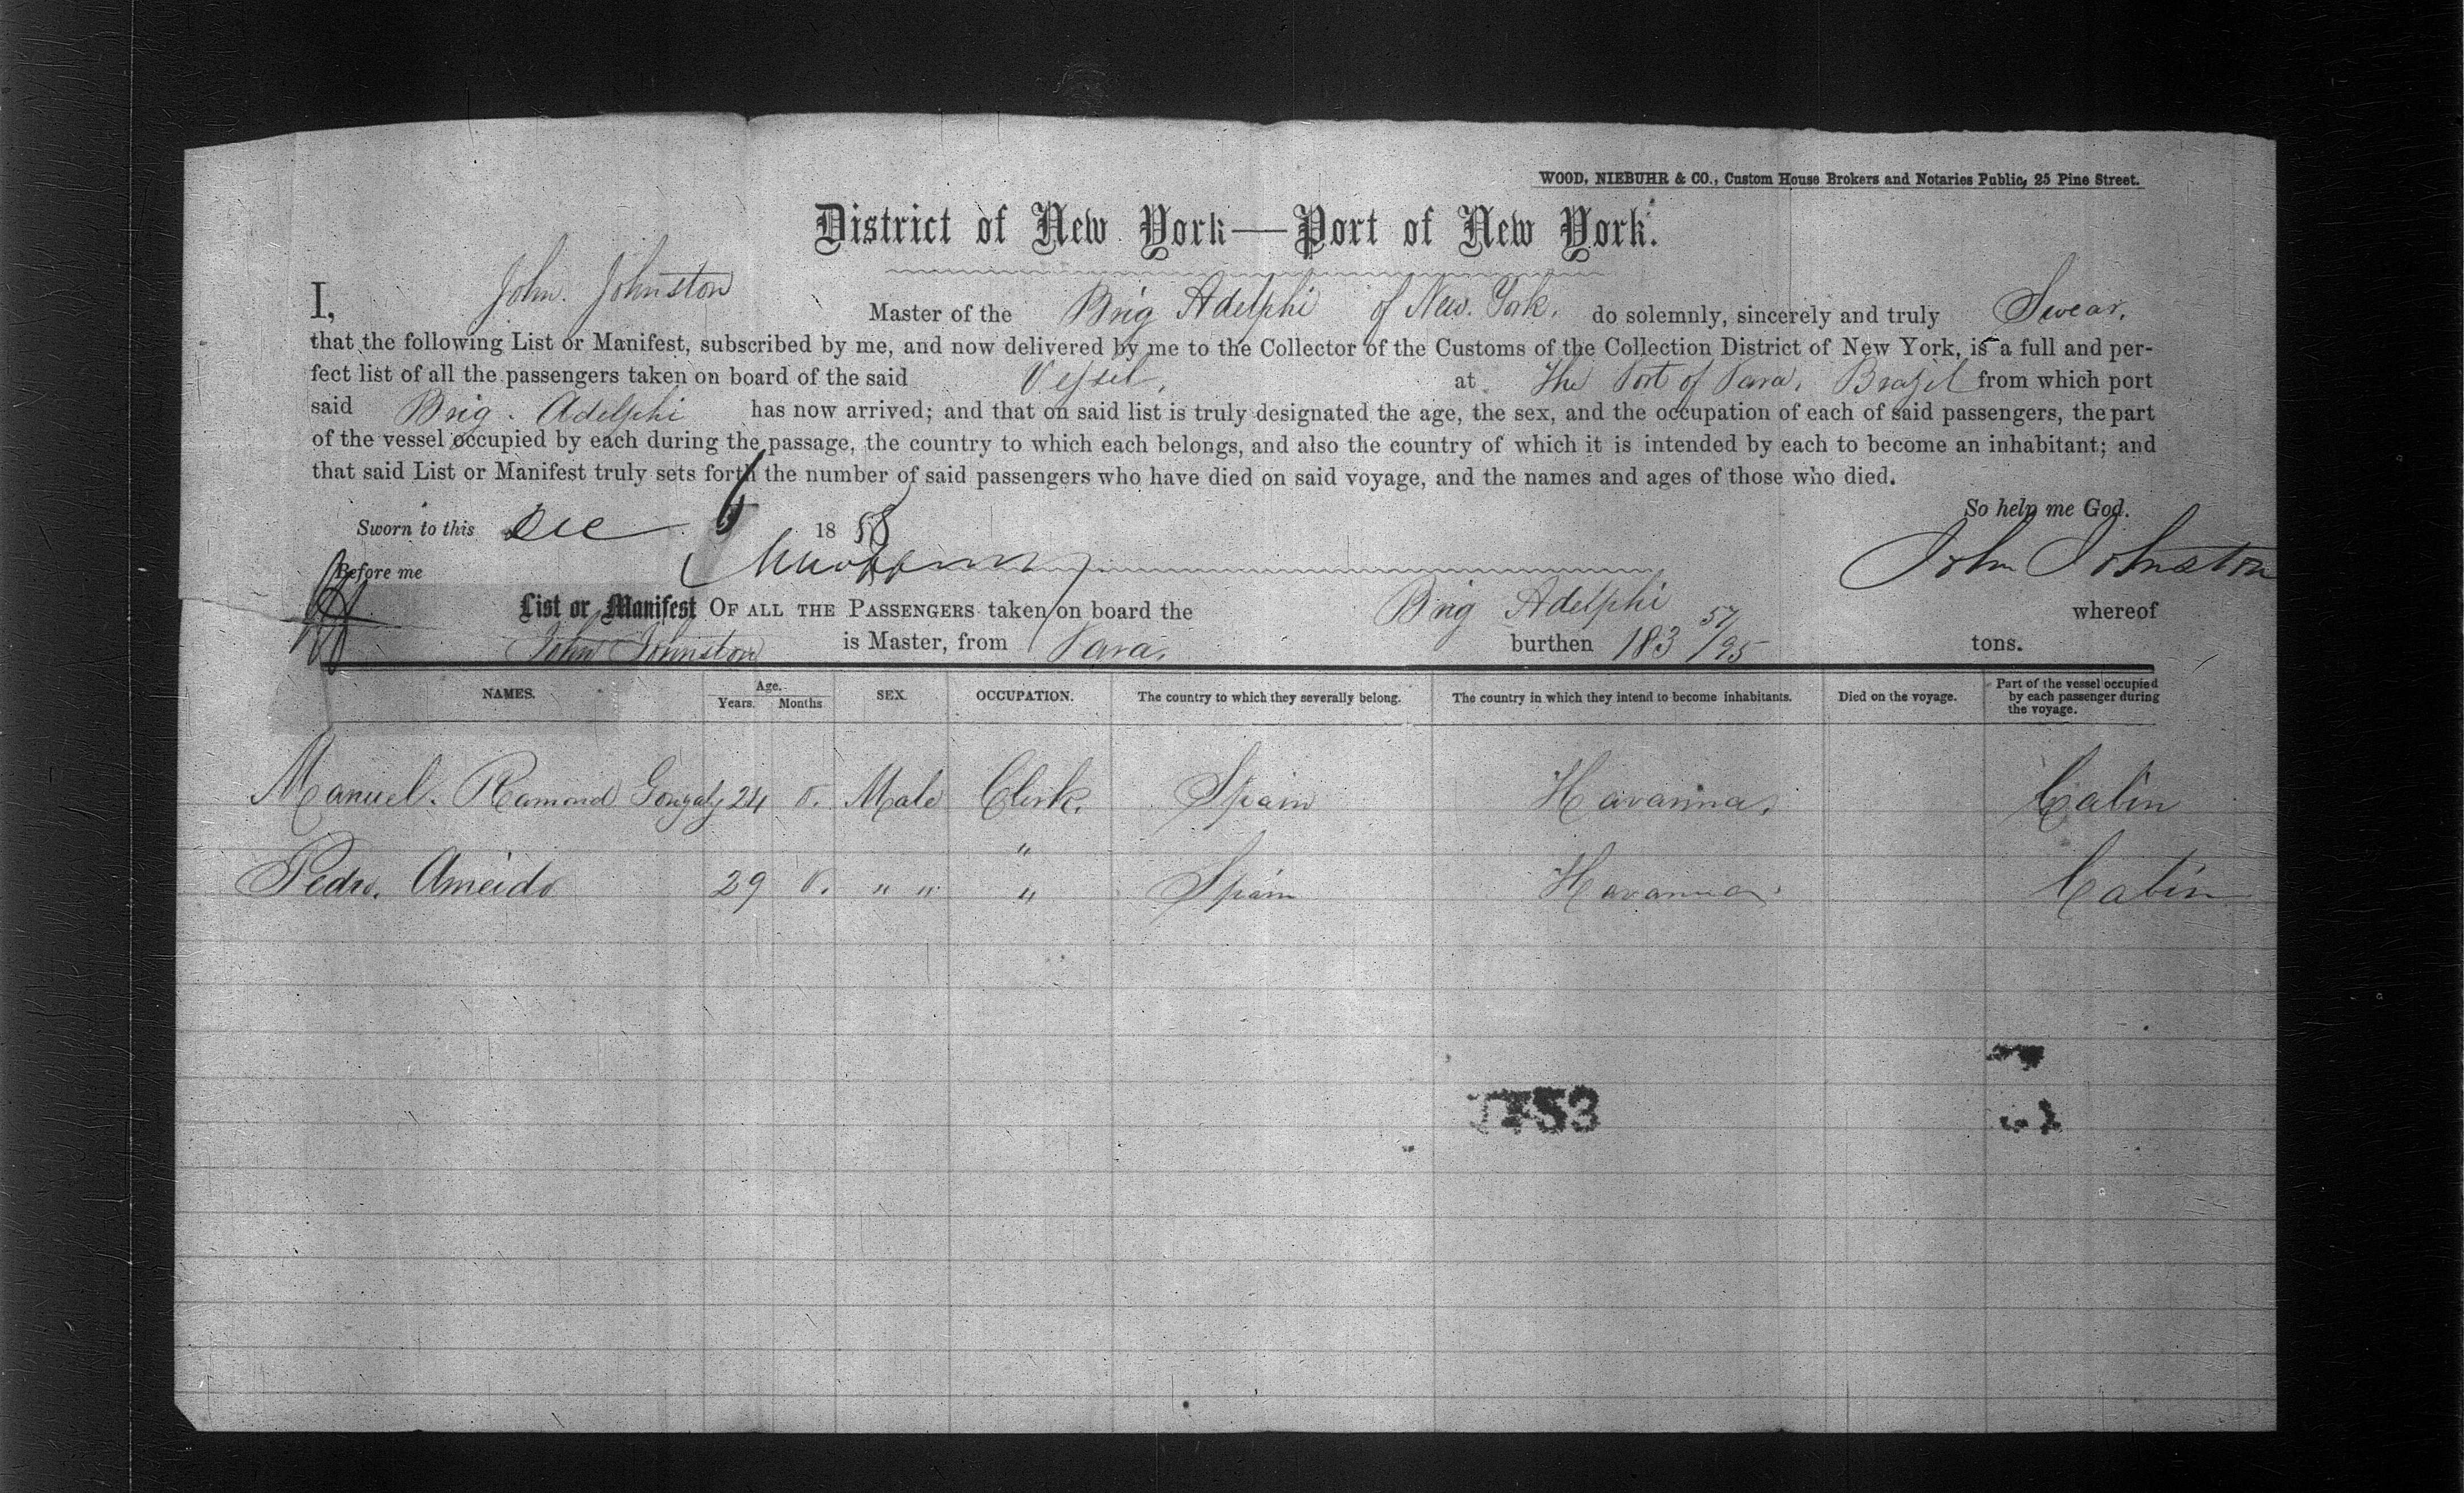 WOOD, NIEBUHR & CO., Custom House Brokers and Notaries Public, 25 Pine Street.
District of New York—Port of New York.
I, John Johnston Master of the Brig Adelphi of New York. do solemnly, sincerely and truly Swear,
that the following List or Manifest, subscribed by me, and now delivered by me to the Collector of the Customs of the Collection District of New York, is a full and per-
fect list of all the passengers taken on board of the said Vessel, at The Port of Para, Brazil from which port
said Brig. Adelphi has now arrived; and that on said list is truly designated the age, the sex, and the occupation of each of said passengers, the part
of the vessel occupied by each during the passage, the country to which each belongs, and also the country of which it is intended by each to become an inhabitant; and
that said List or Manifest truly sets forth the number of said passengers who have died on said voyage, and the names and ages of those who died.
So help me God.
Sworn to this Dec 6 1858
John Johnston
Before me
List or Manifest OF ALL THE PASSENGERS taken on board the Brig Adelphi whereof
John Johnston is Master, from Para. burthen 183 57/95 tons.
NAMES. Age. Years. Months. SEX. OCCUPATION. The country to which they severally belong. The country in which they intend to become inhabitants. Died on the voyage. Part of the vessel occupied by each passenger during the voyage.
Manuel. Ramond Gonzalz 24 0. Male Clerk. Spain Havanna. Cabin
"
Pedro. Ameido 29 0. " " " Spain Havanna. Cabin
53